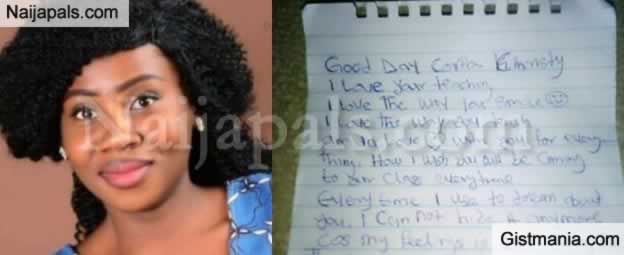 Naijapals.com
Naijapals.com
Good Day
I Love Your teaching
I Love The way you Smile
I Love The way you
you for every
thing. How I wish you will be coming
to our Class everytime
Everytime I use to dream about
you. I can not hide it anymore
Cos my feelings is
Gistmania.com